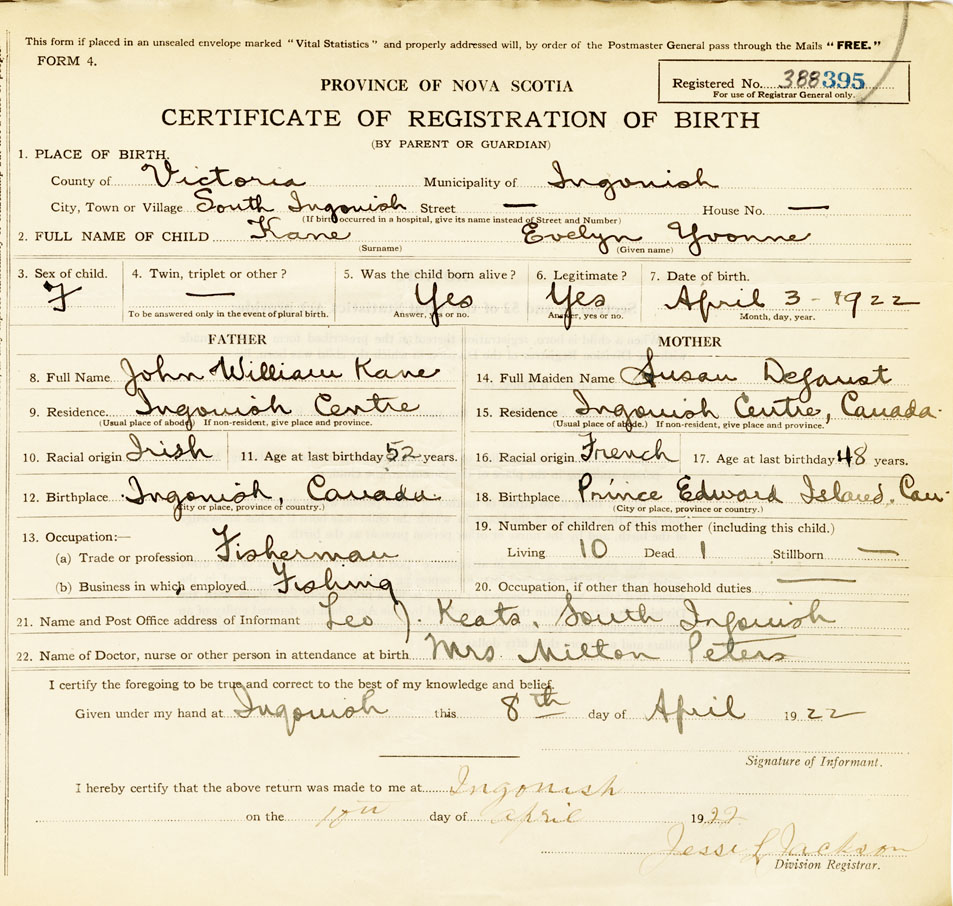 This form if placed in an unsealed envelope marked "Vital Statistics" and properly addressed will, by order of the Postmaster General pass through the Mails "FREE."
FORM 4.
PROVINCE OF NOVA SCOTIA
Registered No. 388395
For use of Registrar General only.
CERTIFICATE OF REGISTRATION OF BIRTH
(BY PARENT OR GUARDIAN)
1. PLACE OF BIRTH.
County of Victoria Municipality of Ingonish
City, Town or Village South Ingonish Street — House No. —
(If birth occurred in a hospital, give its name instead of Street and Number)
2. FULL NAME OF CHILD Kane Evelyn Yvonne
(Surname) (Given name)
3. Sex of child. 4. Twin, triplet or other? 5. Was the child born alive? 6. Legitimate? 7. Date of birth.
F — Yes Yes April 3 - 1922
To be answered only in the event of plural birth. Answer, yes or no. Answer, yes or no. Month, day, year.
FATHER MOTHER
8. Full Name John William Kane 14. Full Maiden Name Susan Defaust
9. Residence Ingonish Centre 15. Residence Ingonish Centre, Canada.
(Usual place of abode) If non-resident, give place and province. (Usual place of abode.) If non-resident, give place and province.
10. Racial origin Irish 11. Age at last birthday 52 years. 16. Racial origin French 17. Age at last birthday 48 years.
12. Birthplace Ingonish, Canada 18. Birthplace Prince Edward Island, Can.
(City or place, province or country.) (City or place, province or country.)
13. Occupation:— 19. Number of children of this mother (including this child.)
(a) Trade or profession Fisherman Living 10 Dead 1 Stillborn —
(b) Business in which employed Fishing 20. Occupation, if other than household duties —
21. Name and Post Office address of Informant Leo J. Keats, South Ingonish
22. Name of Doctor, nurse or other person in attendance at birth Mrs Milton Peters
I certify the foregoing to be true and correct to the best of my knowledge and belief.
Given under my hand at Ingonish this 8th day of April 1922
Signature of Informant.
I hereby certify that the above return was made to me at Ingonish
on the 10th day of april 1922
Jessi L Jackson
Division Registrar.